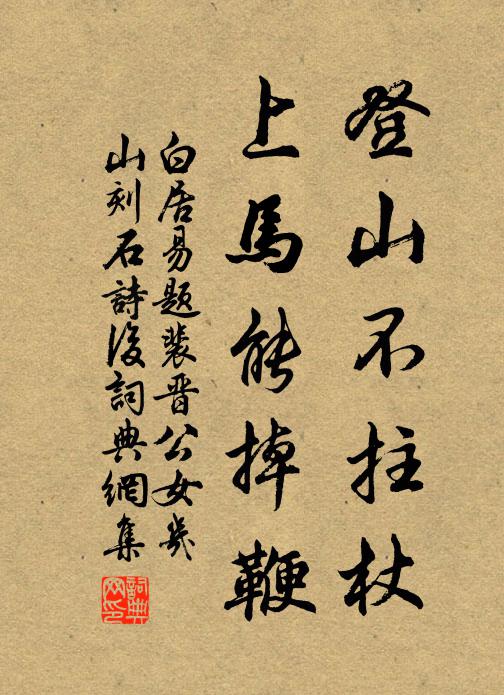 登山不拄杖
上馬能掉鞭
白居易題裴晋公女幾
山刻石詩後詞典網集
詞典
网印